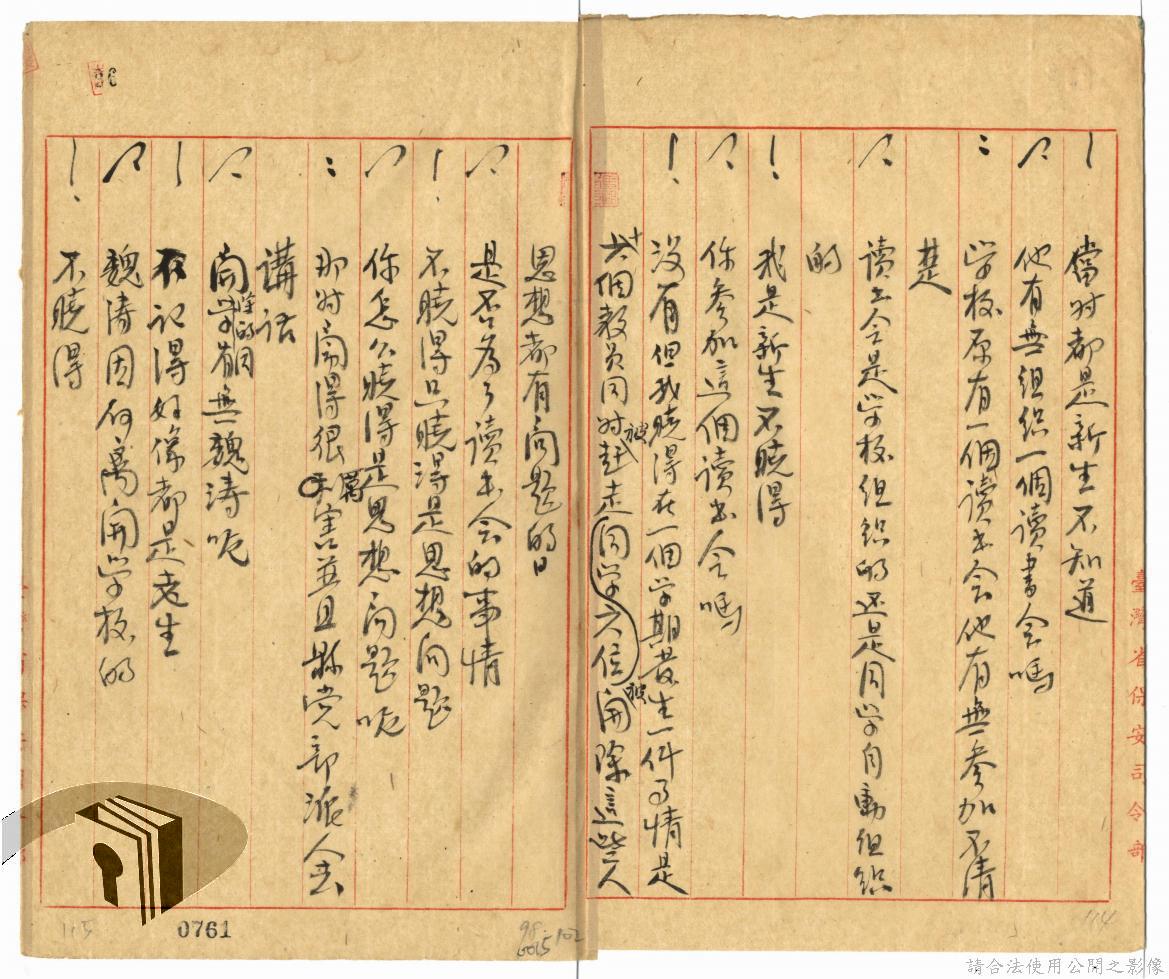 當时都是新生不知道
他有無组织一個讀書会嗎
学校原有一個讀书会他有無参加不清
楚
讀书会是学校组织的还是同学自動组织
的
我是新生不曉得
你参加這個讀书会嗎
没有但我曉得在一個学期發生一件事情是
十六個教員同时被赶走同学六位被開除這些人
思想都有问题的
是否為了讀书会的事情
不曉得只曉得是思想问题
你怎么曉得是思想问题呢
那时闹得很厲害並且縣党部派人去
講话
開除的同学有無魏涛呢
不记得好像都是老生
魏涛因何离開学校的
不曉得
臺灣省保安司令部
96
115
0761
114
請合法使用公開之影像